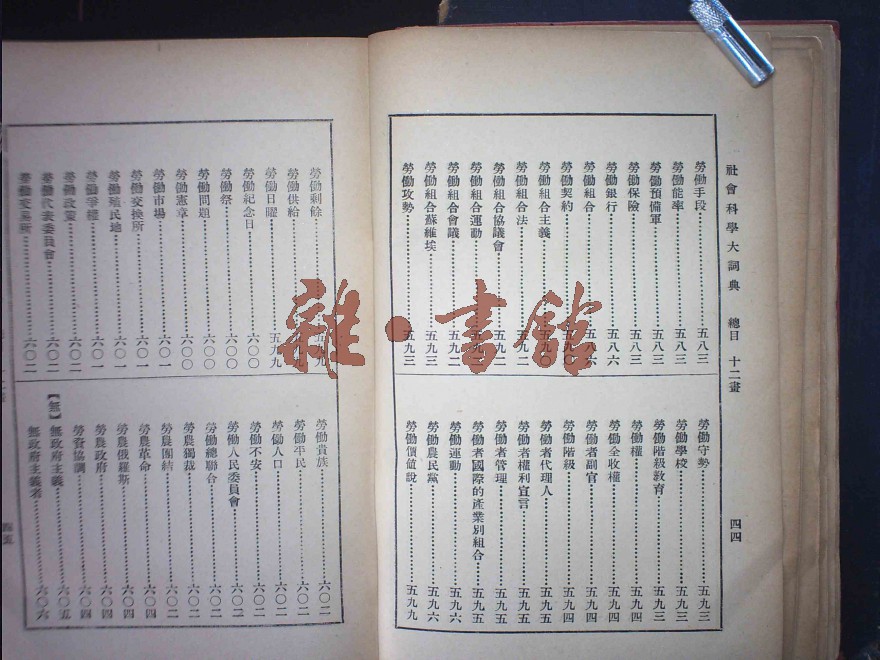 社會科學大詞典 總目 十二畫 四四
勞働手段 五八三
勞働能率 五八三
勞働預備軍 五八三
勞働保險 五八三
勞働銀行 五八六
勞働組合
勞働契約
勞働組合主義
勞働組合法 五九二
勞働組合協議會
勞働組合運動
勞働組合會議 五九二
勞働組合蘇維埃 五九三
勞働攻勢 五九三
勞働守勢 五九三
勞働學校 五九三
勞働階級教育 五九三
勞働權 五九四
勞働全收權 五九四
勞働者副官 五九四
勞働階級 五九四
勞働者代理人 五九五
勞働者權利宣言 五九五
勞働者管理 五九五
勞働者國際的產業別組合 五九五
勞働運動 五九六
勞働農民黨 五九六
勞働價値說 五九九
勞働剩餘
勞働供給
勞働日曜 五九九
勞働紀念日 六〇〇
勞働祭 六〇〇
勞働問題 六〇〇
勞働憲章 六〇一
勞働市場 六〇一
勞働交換所 六〇一
勞働殖民地 六〇一
勞働爭權 六〇一
勞働政策 六〇二
勞働代表委員會 六〇二
勞働交易所 六〇二
勞働貴族 六〇二
勞働平民 六〇二
勞働人口 六〇二
勞働不安 六〇二
勞働人民委員會 六〇二
勞働總聯合 六〇二
勞農獨裁 六〇二
勞農團結 六〇二
勞農革命 六〇四
勞農俄羅斯 六〇四
勞農政府 六〇四
勞資協調 六〇四
【無】無政府主義 六〇五
無政府主義者 六〇六
雜·書館